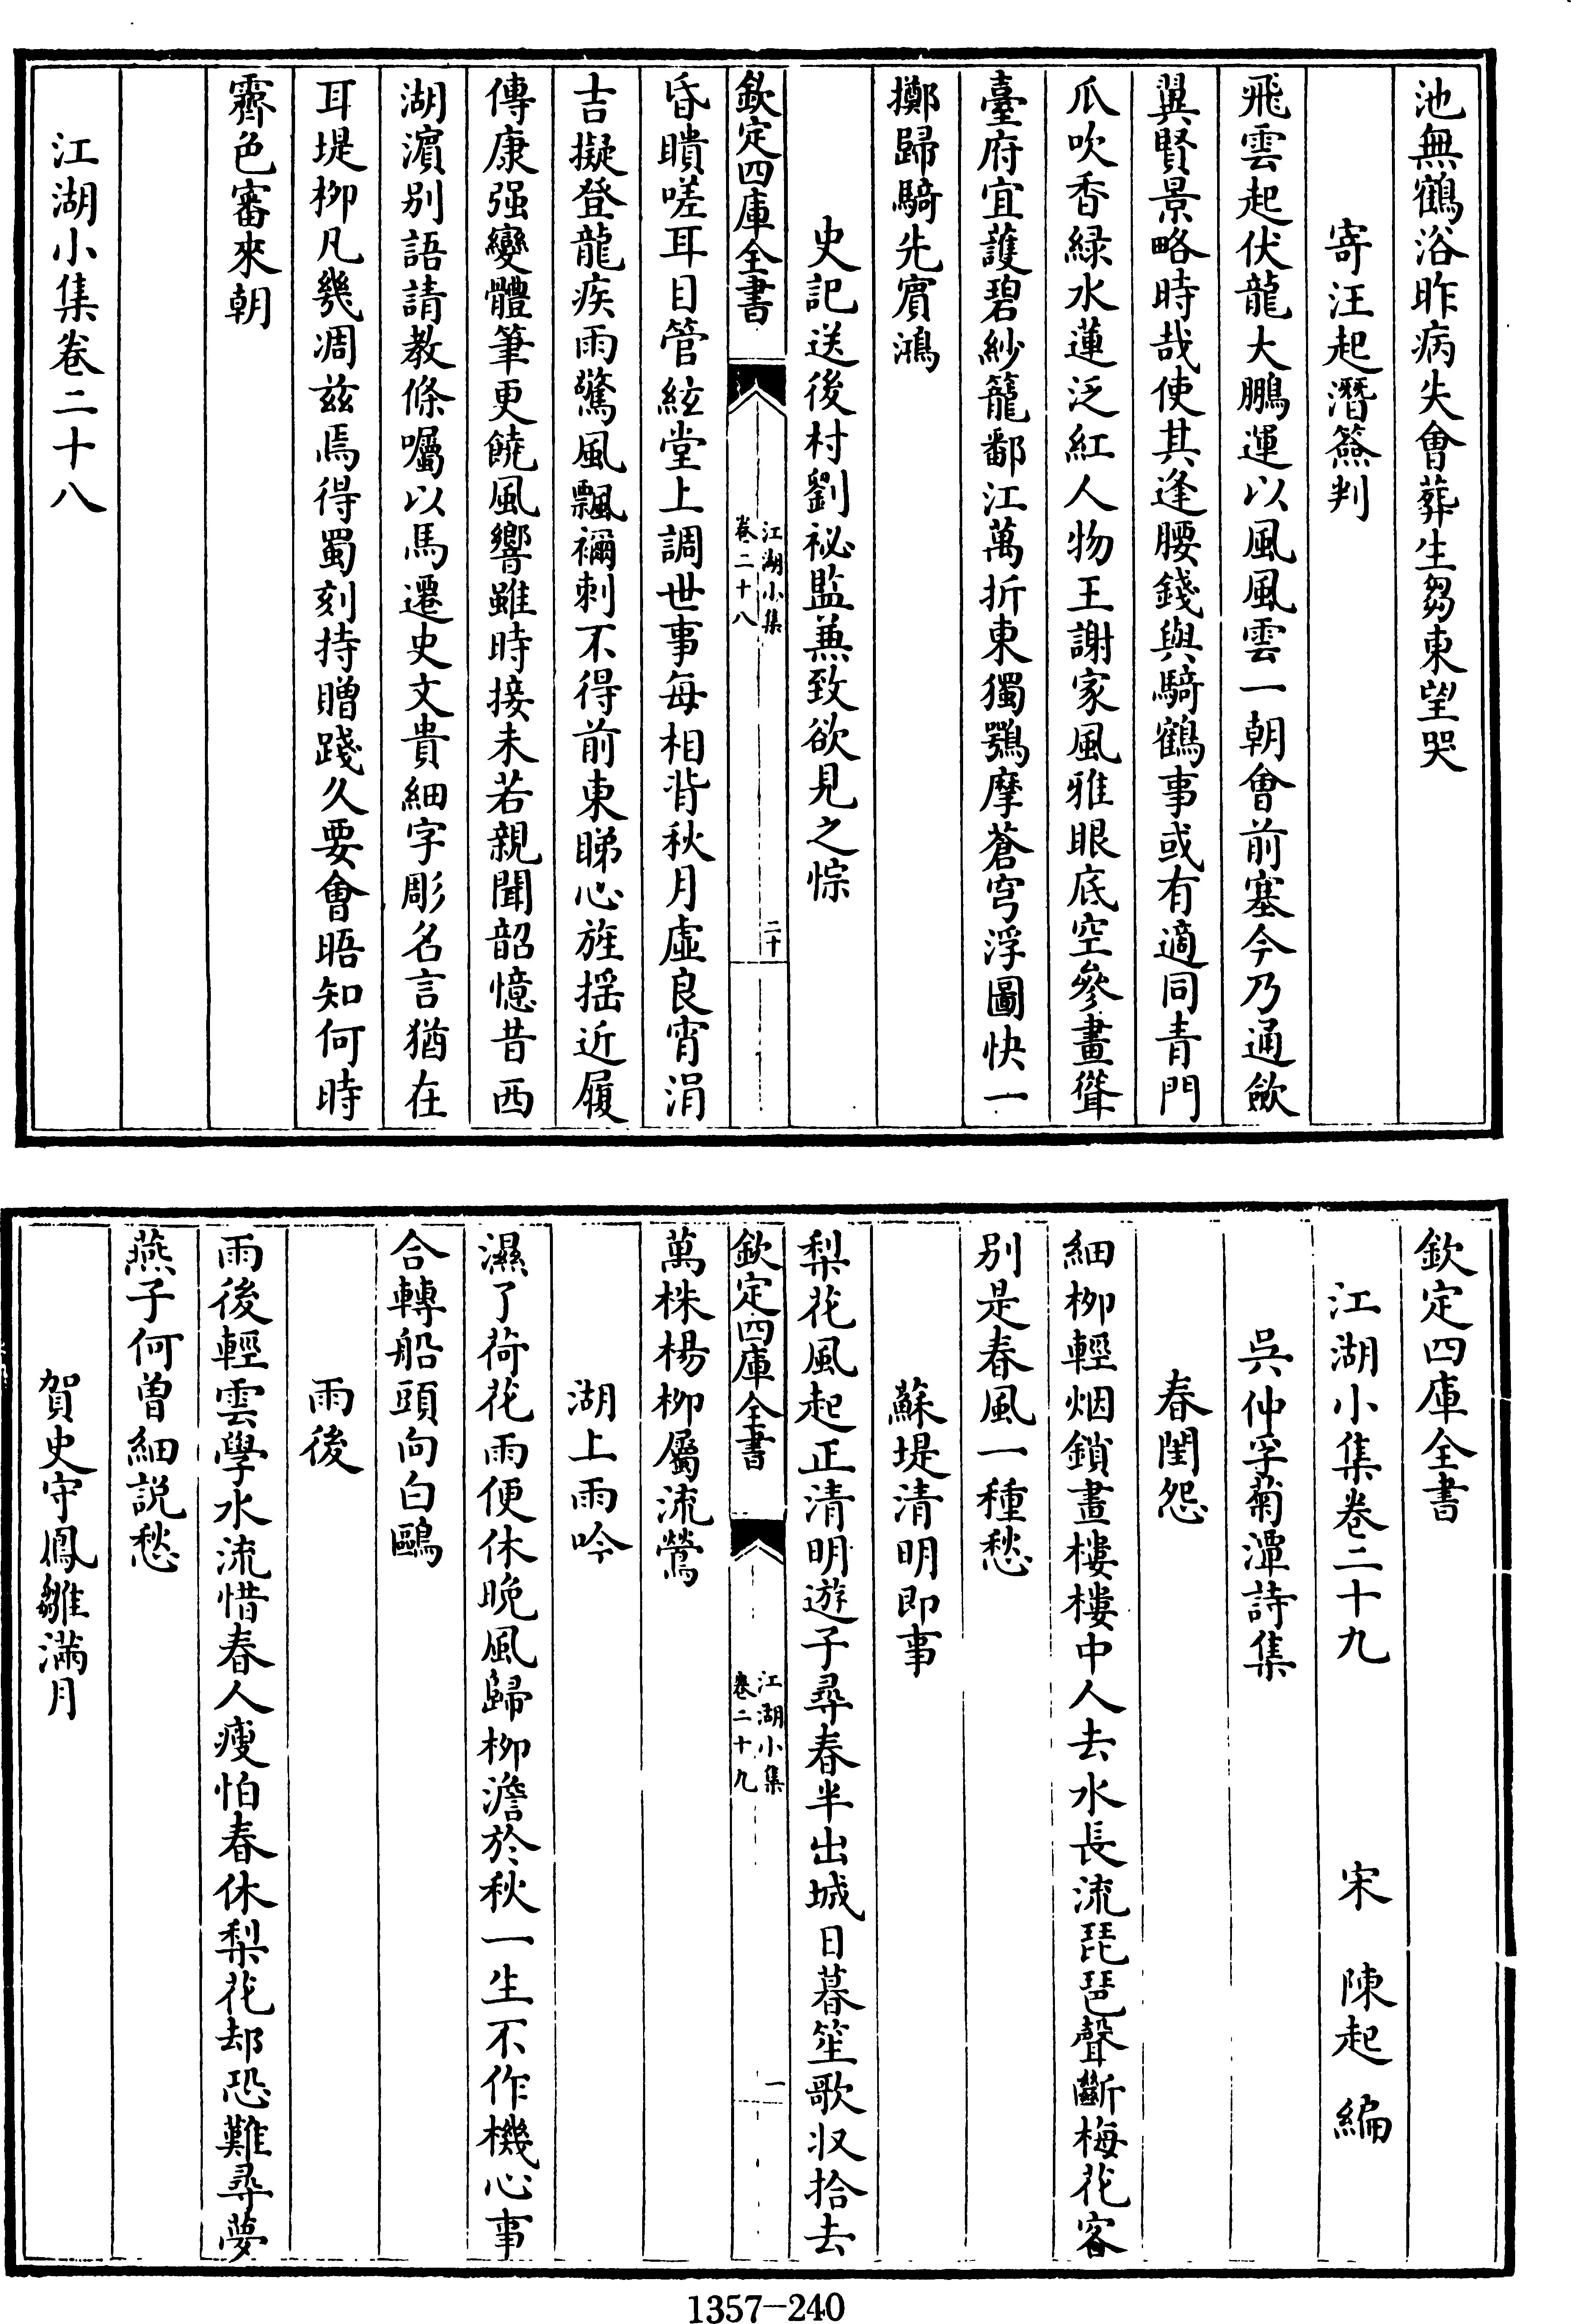 池無鶴浴昨病失會葬生芻東望哭
寄汪起潛簽判
飛雲起伏龍大鵬運以風風雲一朝會前塞今乃通歛
翼賢景略時哉使其逢腰錢與騎鶴事或有適同青門
爪吹香緑水蓮泛紅人物王謝家風雅眼底空參畫聳
臺府宜護碧紗籠鄱江萬折東獨鶚摩蒼穹浮圖快一
擲歸騎先賔鴻
史記送後村劉祕監兼致欲見之悰
欽定四庫全書
江湖小集
卷二十八
二十
昏瞶嗟耳目管絃堂上調世事每相背秋月虛良宵涓
吉擬登龍疾雨驚風飄禰刺不得前東睇心旌揺近履
傳康强變體筆更饒風響雖時接未若親聞韶憶昔西
湖濵别語請教條囑以馬遷史文貴細字彫名言猶在
耳堤栁凡幾凋兹焉得蜀刻持贈踐久要會晤知何時
霽色審來朝
江湖小集卷二十八
欽定四庫全書
江湖小集卷二十九 宋 陳起 編
吳仲孚菊潭詩集
春閨怨
細栁輕烟鎖畫樓樓中人去水長流琵琶聲斷梅花客
别是春風一種愁
蘇堤清明即事
梨花風起正清明遊子尋春半出城日暮笙歌収拾去
欽定四庫全書
江湖小集
卷二十九
一
萬株楊栁屬流鶯
湖上雨吟
濕了荷花雨便休晚風歸栁澹於秋一生不作機心事
合轉船頭向白鷗
雨後
雨後輕雲學水流惜春人瘦怕春休梨花却恐難尋夢
燕子何曽細説愁
賀史守鳳雛滿月
1357-240